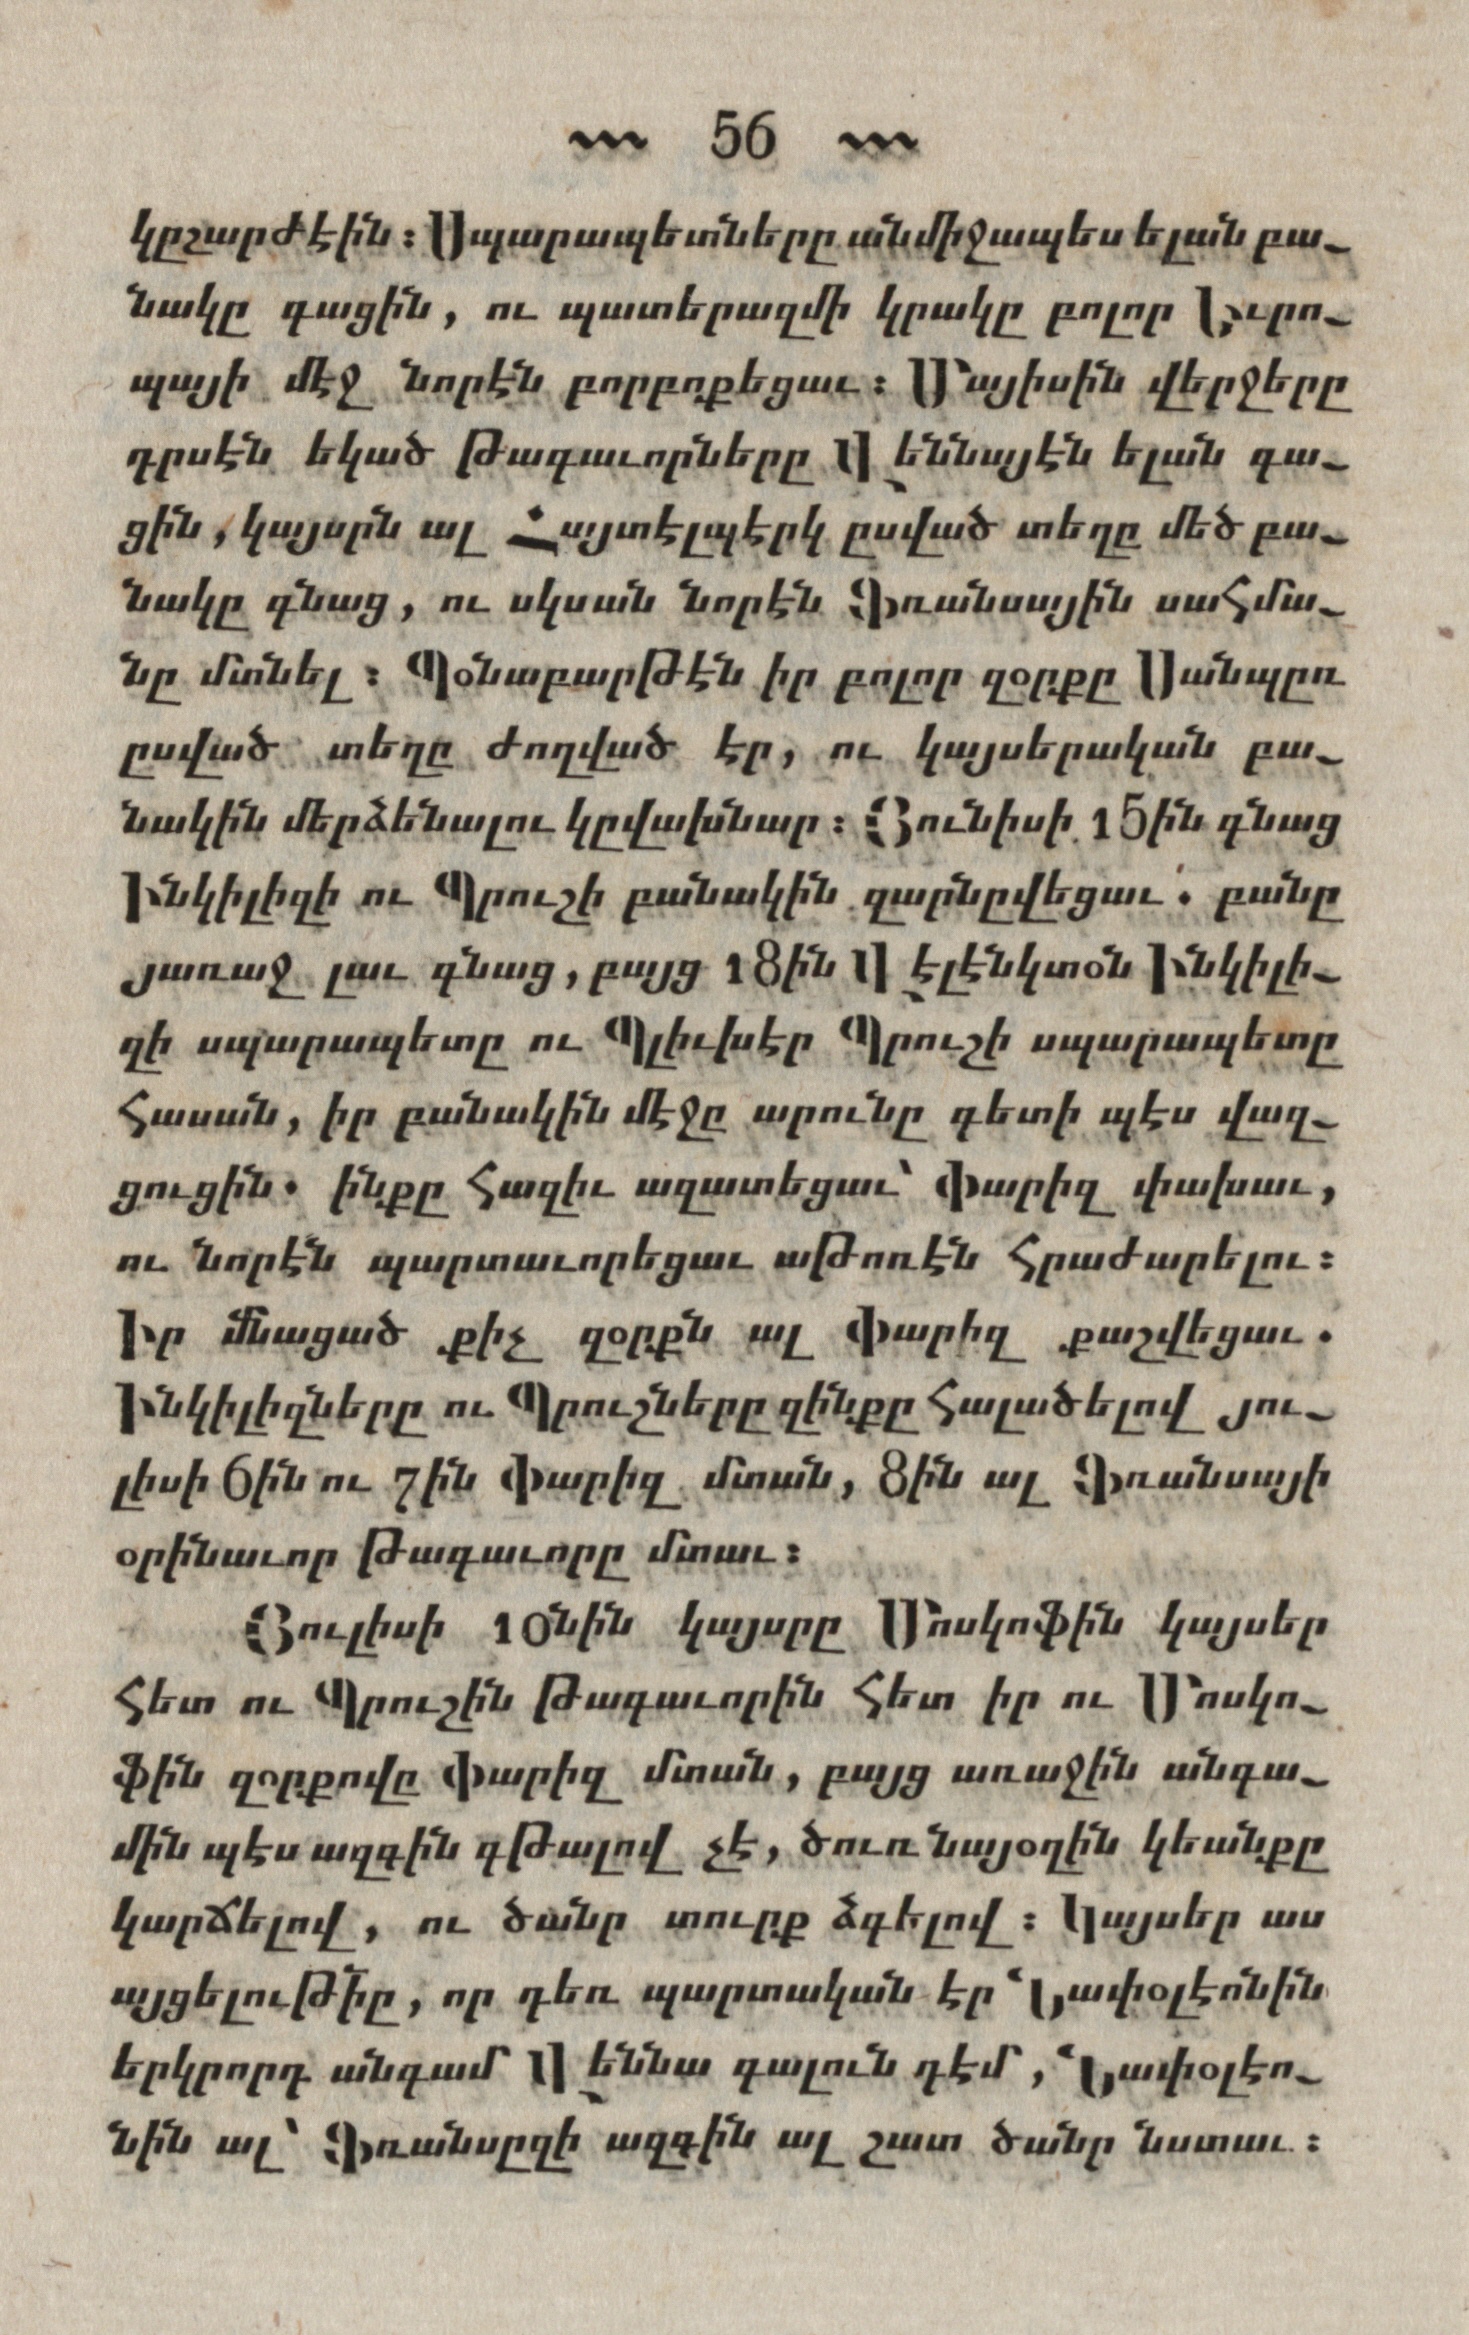 56
կըշարժէին։ Սպարապետները անմիջապես ելան բա֊
նակը գացին, ու պատերազմի կրակը բոլոր Եւրո֊
պայի մէջ նորէն բորբոքեցաւ։ Մայիսին վերջերը
դրսէն եկած թագաւորները Վեննայէն ելան գա֊
ցին, կայսրն ալ Հայտէլպէրկ ըսված տեղը մեծ բա֊
նակը գնաց, ու սկսան նորէն Ֆռանսային սահմա֊
նը մտնել։ Պօնաբարթէն իր բոլոր զօրքը Սանպըռ
ըսված տեղը ժողված էր, ու կայսերական բա֊
նակին մերձենալու կըվախնար։ Յունիսի 15ին գնաց
Ինկիլիզի ու Պրուշի բանակին զարնըվեցաւ. բանը
յառաջ լաւ գնաց, բայց 18ին Վէլէնկտօն Ինկիլի֊
զի սպարապետը ու Պլիւխէր Պրուշի սպարապետը
հասան, իր բանակին մէջը արունը գետի պէս վազ֊
ցուցին. ինքը հազիւ ազատեցաւ՝ Փարիզ փախաւ,
ու նորէն պարտաւորեցաւ աթոռէն հրաժարելու։
Իր մնացած քիչ զօրքն ալ Փարիզ քաշվեցաւ.
Ինկիլիզները ու Պրուշները զինքը հալածելով յու֊
լիսի 6ին ու 7ին Փարիզ մտան, 8ին ալ Ֆռանսայի
օրինաւոր թագաւորը մտաւ։
Յուլիսի 10նին կայսրը Մոսկոֆին կայսեր
հետ ու Պրուշին թագաւորին հետ իր ու Մոսկո֊
ֆին զօրքովը Փարիզ մտան, բայց առաջին անգա֊
մին պէս ազգին գթալով չէ, ծուռ նայօղին կեանքը
կարճելով, ու ծանր տուրք ձգելով։ Կայսեր աս
այցելութիւ̅ը, որ դեռ պարտական էր Նափօլէոնին
երկրորդ անգամ Վեննա գալուն դէմ, Նափօլէո֊
նին ալ՝ Ֆռանսըզի ազգին ալ շատ ծանր նստաւ։